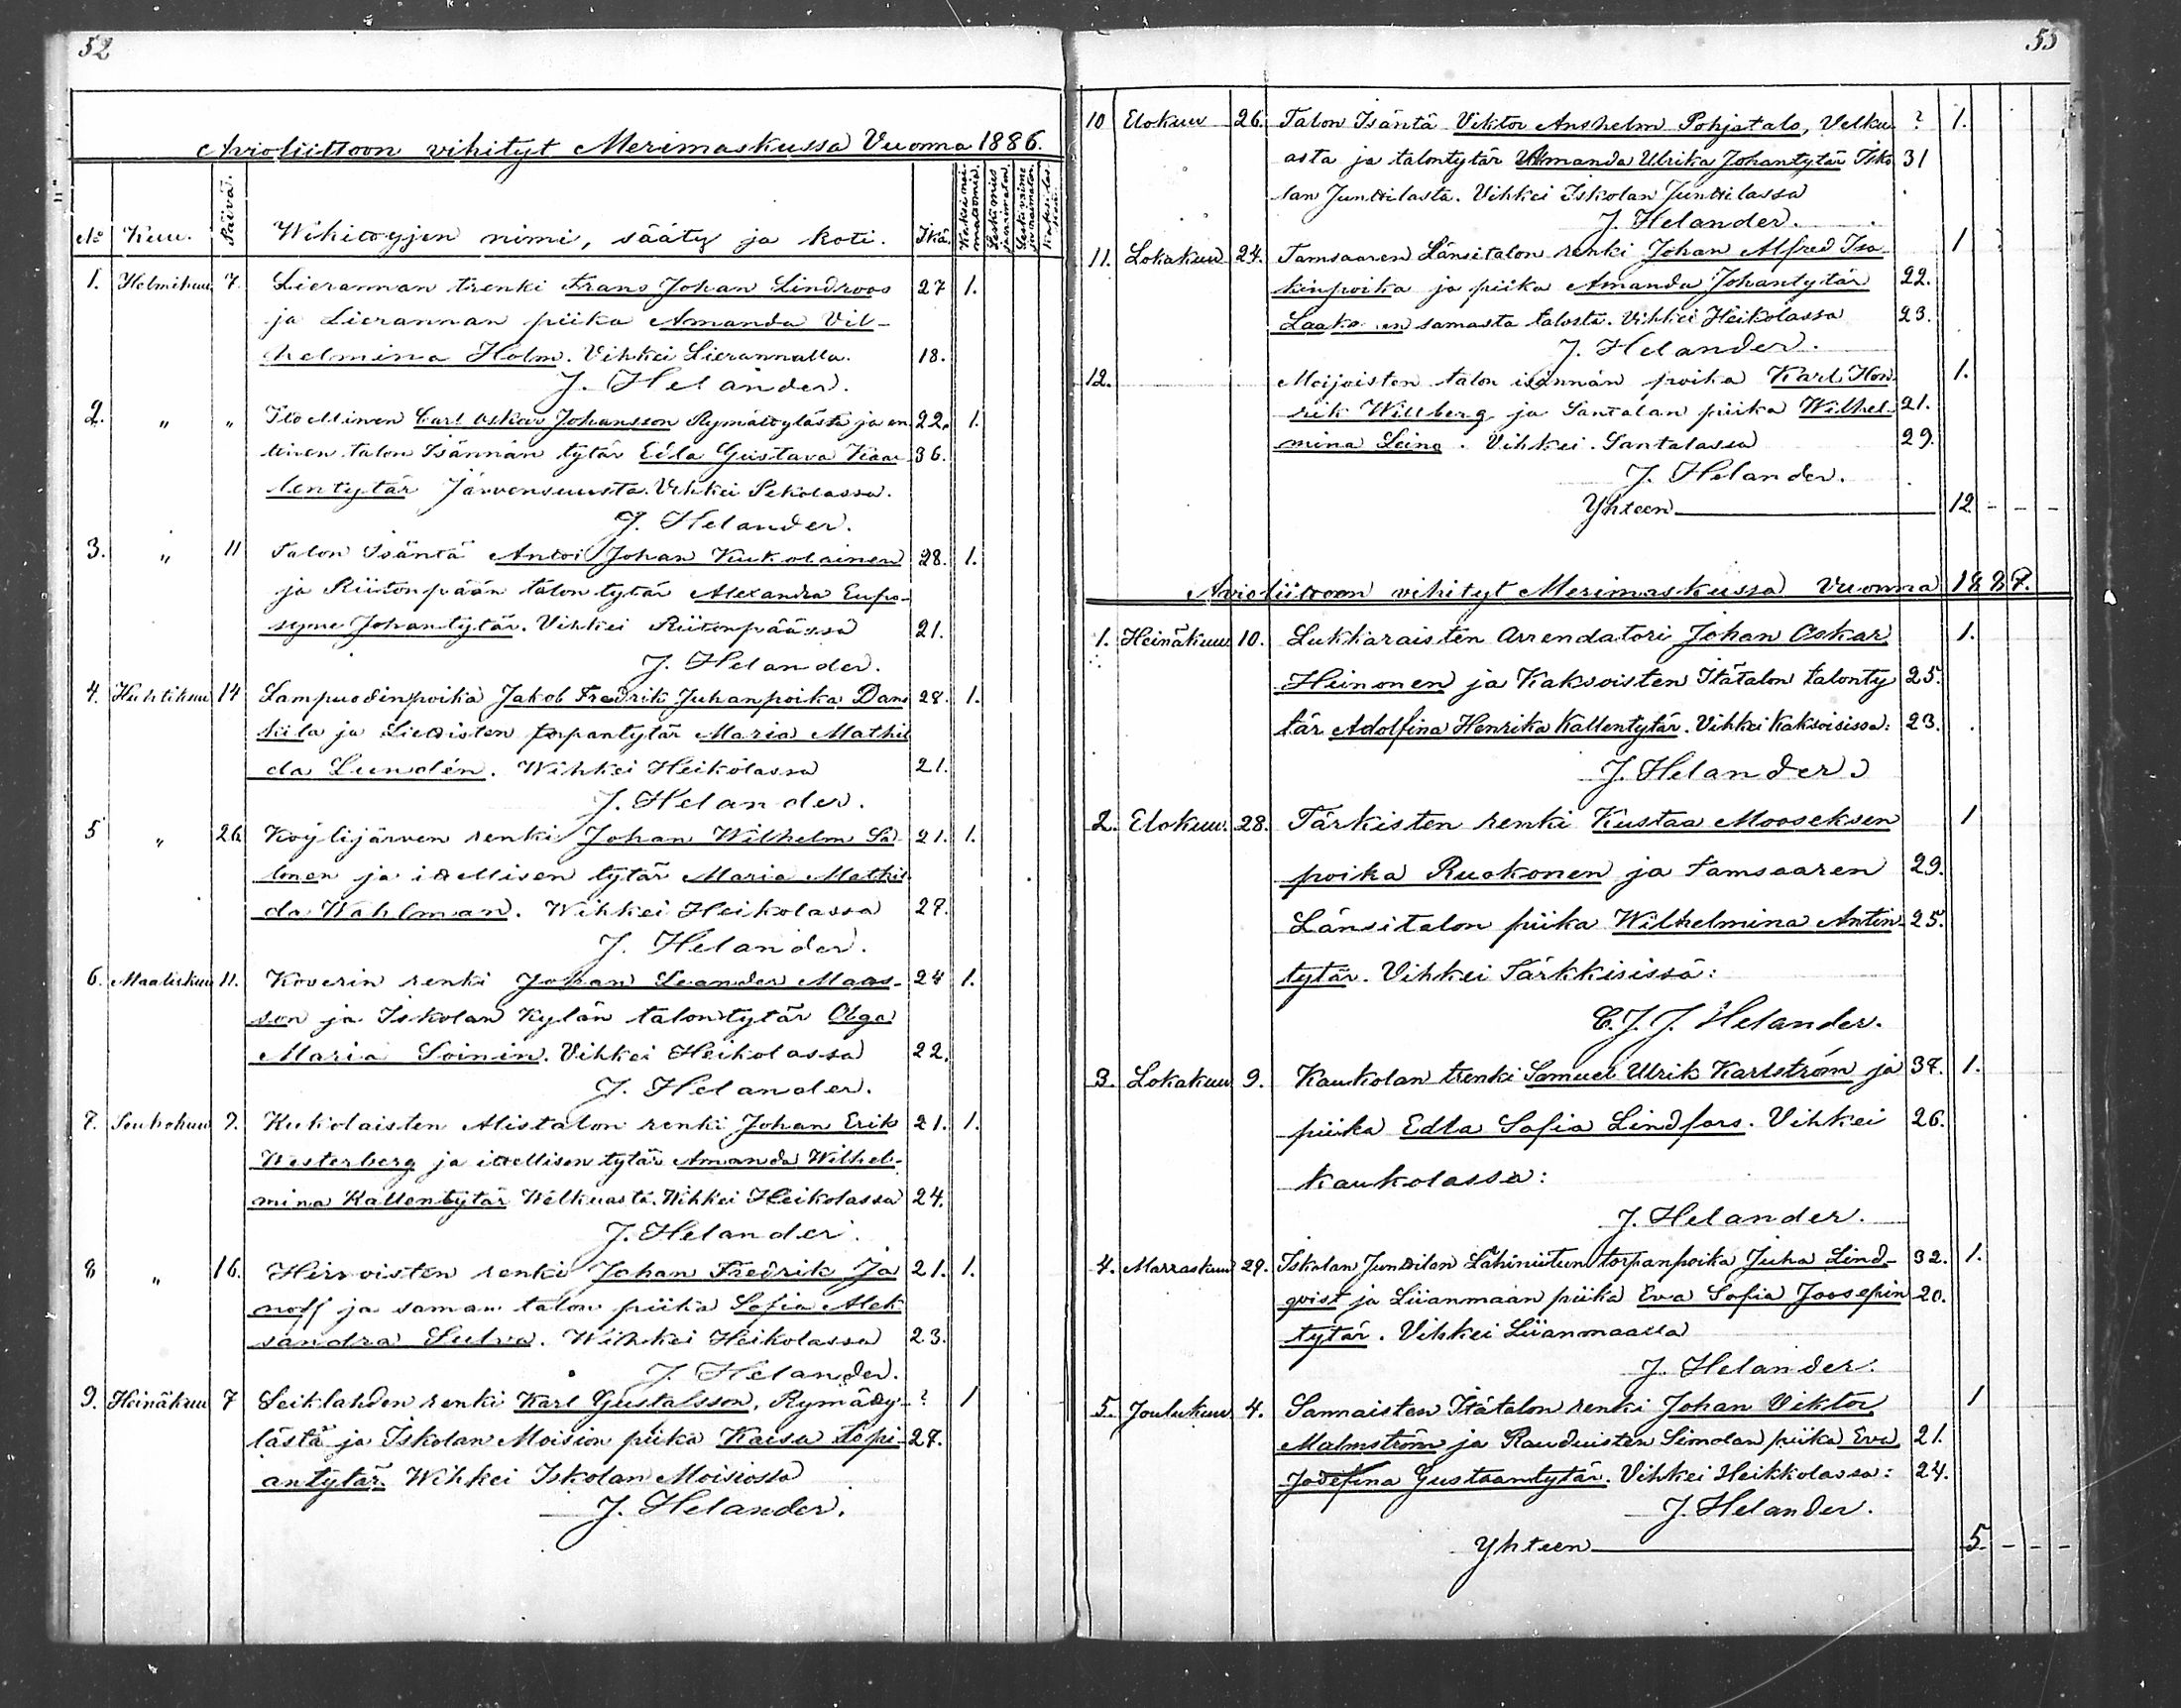 52
Avioliittoon vihityt Merimaskussa Vuonna 1886.
No Kuu. Päivä. Wihittyjen nimi, sääty ja koti. Ikä.
1. Helmikuu 7. Lierannan trenki Frans Johan Lindroos 27 1.
ja Lierannan piika Amanda Vil-
helmina Holm. Vihkei Lierannalla. 18.
J. Helander.
2. " " Itsellinen Carl Oskar Johansson Rymättylästä ja en 22. 1.
tinen talon Isännän tytär Edla Gustava Kaar 36.
lentytär Järvensuusta. Vihkei Pekolassa.
J. Helander.
3. " 11 Talon Isäntä Antoi Johan Kukolainen 28. 1.
ja Riitonpään talon tytär Alexandra Eufro-
syne Johantytär. Vihkei Riitonpäässä 21.
J. Helander.
4. Huhtikuu 14 Lampuodinpoika Jakob Fredrik Juhanpoika Dans 28. 1.
kila ja Liewisten torpantytär Maria Mathil
da Lundén. Wihkei Heikolassa 21.
J. Helander.
5 " 26 Köylijärven renki Johan Wilhelm Sal- 21. 1.
monen ja itsellisen tytär Maria Mathil
da Wahlman. Wihkei Heikolassa 27.
J. Helander.
6. Maaliskuu 11. Koverin renki Johan Leander Maas- 24 1.
son ja Iskolan Kylän talontytär Olga
Maria Soinin. Vihkei Heikolassa 22.
J. Helander.
7. Toukokuu 7. Kukolaisten Alistalon renki Johan Erik 21. 1.
Westerberg ja itsellisen tytär Amanda Wilhel-
mina Kallentytär Welkuasta. Wihkei Heikolassa 24.
J. Helander.
8 " 16. Hirvoisten renki Johan Fredrik Ja 21. 1.
noff ja saman talon piika Sofia Alek
sandra Sulva. Wihkei Heikolassa 23.
J. Helander.
9. Heinäkuu 7 Seiklahden renki Karl Gustafsson, Rymätty- ? 1
lästä ja Iskolan Moision piika Kaisa Topi- 27.
antytär. Wihkei Iskolan Moisiossa
J. Helander.
53
10 Elokuu 26. Talon Isäntä Viktor Anshelm Pohjatalo, Velku ? 1.
asta ja talontytär Amanda Ulrika Johantytär Isko 31
lan Junttilasta. Vihkei Iskolan Junttilassa
J. Helander.
11. Lokakuu 24. Tamsaaren Länsitalon renki Johan Alfred Isa- 1
kinpoika ja piika Amanda Johantytär 22.
samasta talosta. Vihkei Heikolassa 23.
J. Helander.
12. Meijoisten talon isännän poika Karl Hen- 1.
rik Willberg ja Santalan piika Wilhel- 21.
mina Leino. Vihkei Santalassa 29.
J. Helander.
Yhteen 12 - - -
Avioliittoon vihityt Merimaskussa Vuonna 1887.
1. Heinäkuu 10. Lukkaraisten Arrendatori Johan Oskar 1.
Heinonen ja Kaksoisten Itätalon talonty 25.
tär Adolfina Henrika Kallentytär. Vihkei Kaksoisissa: 23.
J. Helander
2. Elokuu. 28. Tärkisten renki Kustaa Mooseksen 1
poika Ruokonen ja Tamsaaren 29.
Länsitalon piika Wilhelmina Antin- 25.
tytär. Vihkei Tärkkisissä:
C. J. J. Helander.
3. Lokakuu 9. Kaukolan trenki Samuel Ulrik Karlström ja 37. 1.
piika Edla Sofia Lindfors. Vihkei 26.
Kaukolassa:
J. Helander.
4. Marraskuu 27. Iskolan Junttilan Lähiniitun torpanpoika Juha Lind- 32. 1.
qvist ja Liianmaan piika Eva Sofia Joosepin 20.
tytär. Vihkei Liianmaalla
J. Helander.
5. Joulukuu 4. Sannaisten Itätalon renki Johan Viktor 1
Malmström ja Rauduisten Simolan piika Eva 21.
Josefina Gustaantytär. Vihkei Heikkolassa: 24.
J. Helander.
Yhteen 5. - - -